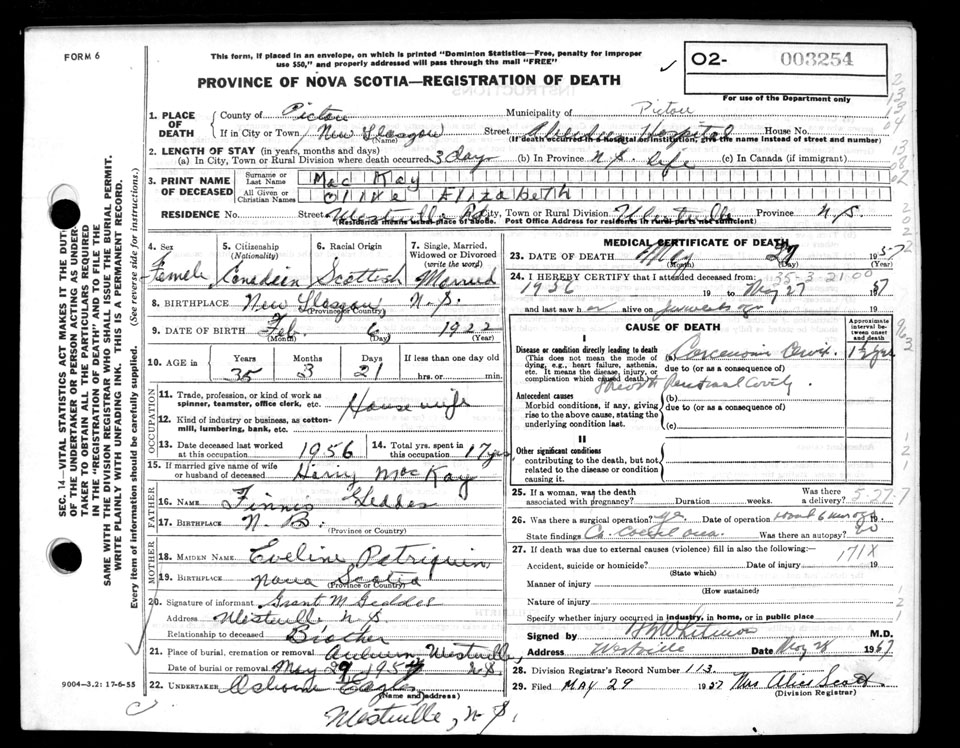 FORM 6
This form, if placed in an envelope, on which is printed "Dominion Statistics—Free, penalty for improper
use $50," and properly addressed will pass through the mail "FREE"
PROVINCE OF NOVA SCOTIA—REGISTRATION OF DEATH
O2- 003254
For use of the Department only
SEC. 14—VITAL STATISTICS ACT MAKES IT THE DUTY
OF THE UNDERTAKER OR PERSON ACTING AS UNDER-
TAKER TO OBTAIN ALL THE PARTICULARS REQUIRED
IN THE "REGISTRATION OF DEATH" AND TO FILE THE
SAME WITH THE DIVISION REGISTRAR WHO SHALL ISSUE THE BURIAL PERMIT.
WRITE PLAINLY WITH UNFADING INK. THIS IS A PERMANENT RECORD.
Every item of information should be carefully supplied. (See reverse side for instructions.)
1. PLACE OF DEATH
County of Pictou Municipality of Pictou
If in City or Town New Glasgow Street Aberdeen Hospital House No.
(Name) (If death occurred in a hospital or institution, give the name instead of street and number)
2. LENGTH OF STAY (in years, months and days)
(a) In City, Town or Rural Division where death occurred 3 days (b) In Province N.S. life (c) In Canada (if immigrant)
3. PRINT NAME OF DECEASED
Surname or Last Name MacKay
All Given or Christian Names Olive Elizabeth
RESIDENCE No. Street Westville Rd City, Town or Rural Division Westville Province N.S.
(Residence means usual place of abode. Post Office Address for rural parts not sufficient)
4. Sex Female
5. Citizenship (Nationality) Canadian
6. Racial Origin Scottish
7. Single, Married, Widowed or Divorced (write the word) Married
8. BIRTHPLACE New Glasgow N.S.
(Province or Country)
9. DATE OF BIRTH Feb. 6 1922
(Month) (Day) (Year)
10. AGE in Years Months Days If less than one day old
35 3 21 hrs. or min.
OCCUPATION
11. Trade, profession, or kind of work as
spinner, teamster, office clerk, etc. House wife
12. Kind of industry or business, as cotton-
mill, lumbering, bank, etc.
13. Date deceased last worked at this occupation 1956
14. Total yrs. spent in this occupation 17 yrs
15. If married give name of wife
or husband of deceased MacKay
FATHER
16. NAME Geddes
17. BIRTHPLACE N.B.
(Province or Country)
MOTHER
18. MAIDEN NAME Eveline Patriquin
19. BIRTHPLACE Nova Scotia
(Province or Country)
20. Signature of informant Grant M Geddes
Address Westville N.S.
Relationship to deceased Brother
21. Place of burial, cremation or removal Auburn, Westville, N.S.
Date of burial or removal May 29, 1957
22. UNDERTAKER Osborne
(Name and address)
Westville, N.S.
9004—3.2: 17-6-55
MEDICAL CERTIFICATE OF DEATH
23. DATE OF DEATH May 27 1957
(Month) (Day) (Year)
35-3-21-00
24. I HEREBY CERTIFY that I attended deceased from:
1956 19 to May 27 1957
and last saw h er alive on 19
CAUSE OF DEATH
Approximate interval between onset and death
I
Disease or condition directly leading to death
(This does not mean the mode of
dying, e.g., heart failure, asthenia,
etc. It means the disease, injury, or
complication which caused death)
(a) Carcinoma Cervix 1 1/2 yrs
due to (or as a consequence of)
Antecedent causes
Morbid conditions, if any, giving
rise to the above cause, stating the
underlying condition last.
(b)
due to (or as a consequence of)
(c)
II
Other significant conditions
contributing to the death, but not
related to the disease or condition
causing it.
25. If a woman, was the death
associated with pregnancy? Duration weeks. Was there a delivery? 5-27-7
26. Was there a surgical operation? yes Date of operation 19
State findings Was there an autopsy? no
27. If death was due to external causes (violence) fill in also the following:— 171X
Accident, suicide or homicide? Date of injury 19
(State which)
Manner of injury
(How sustained)
Nature of injury
Specify whether injury occurred in industry, in home, or in public place
Signed by M.D.
Address Westville May 28 1957
28. Division Registrar's Record Number 113.
29. Filed MAY 29 1957 Mrs Alice Scott
(Division Registrar)